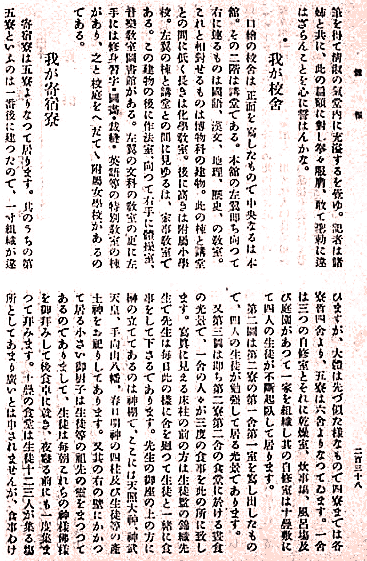 雜報
二百三十八
筆を得て清淑の氣堂內に充溢するを覺ゆ。記者は諸
姉と共に、此の扁額に對し拳々服膺、敢て聖勅に違
はざらんことを心に誓はんかな。
我が校舍
口繪の校舍は正面を寫したもので中央なるは本
館、その二階は講堂である。本館の左翼卽ち向つて
右に建るものは國語、漢文、地理、歷史、の敎室。
これと相對せるものは博物科の建物。此の棟と講堂
との間に低く長きは化學敎室。後に高きは附屬小學
校、左翼の棟と講堂との間に見ゆるは、家事敎室で
ある。この建物の後に作法室、向つて右手に體操室、
音樂敎室圖書館がある。左翼の文科の敎室の更に左
手には修身習字・圖畫・裁縫・英語等の特別敎室の棟
があり、之と校庭をへだてゝ附屬女學校があるの
である。
我が寄宿寮
寄宿寮は五寮よりなつて居ります。其のうちの第
五寮といふのは一番後に建つたので、一寸組織が違
ひますが、大體は先づ似た樣なもので四寮までは各
寮皆四舍より、五寮は六舍よりなつてゐます。一舍
は三つの自修室とそれに乾燥室、炊事場、風呂場及
び庭園があつて一家を組織し其の自修室は十疊敷に
て四人の生徒が不斷起臥して居ります。
第二圖は第二寮の第一舍第一室を寫し出したもの
で、四人の生徒が勉強して居る光景であります。
又第三圖は卽ち第二寮第二舍の食堂に於ける蓑食
の光景で、一舍の人々が三度の食事を此の所に致し
ます。寫眞に見える床柱の前の方は生徒監の錦織先
生で先生は每日此の樣に舍を廻つて生徒と一緖に食
事をして下さるであります。先生の御座の上の方に
榊の立てゝあるのは神棚で、こゝには天照大神、神武
天皇、手向山八幡、春日明神の四柱及び生徒等の產
土神をお祀りしてあります。又其の右の壁にかゝつ
て居る小さい御厨子は生徒等の祖先の靈をまつつて
あるのでありまして、生徒は每朝これらの神樣佛樣
を御拜みして後食卓に就き、夜寢る前にも一度集ま
つて拜みます。十疊の食堂は生徒十二三人が集る場
所としてあまり廣いとは申されませんが、食事わけ